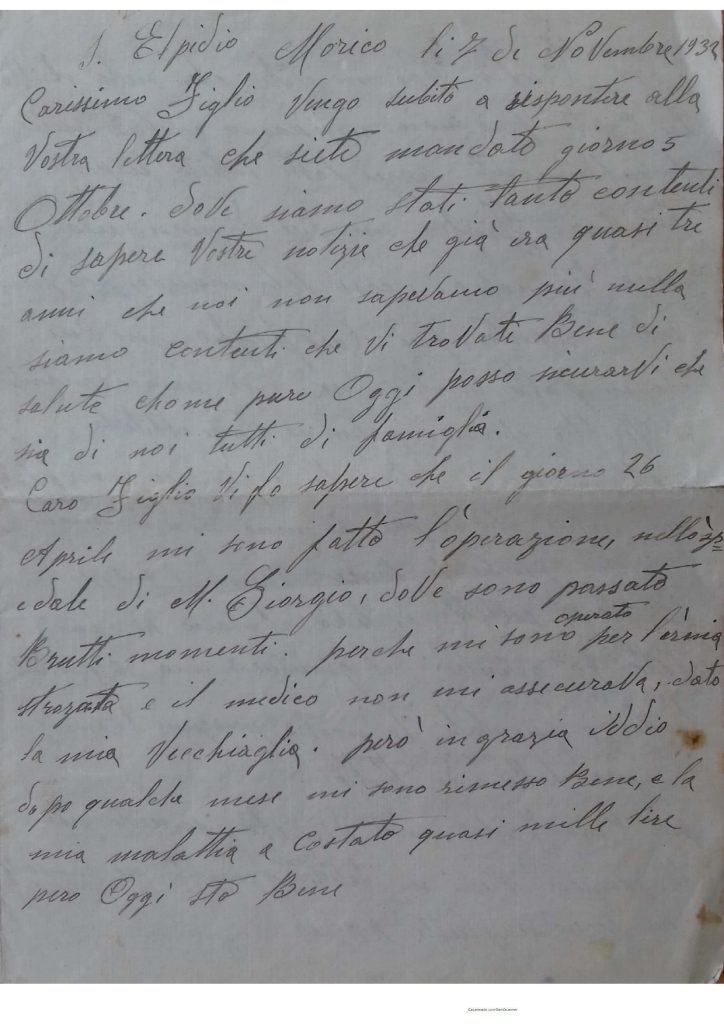 S. Elpidio Morico li 7 di Novembre 1932
Carissimo Figlio Vengo subito a rispontire alla
Vostra lettera che siete mandato giorno 5
Ottobre. dove siamo stati tanto contenti
di sapere Vostre notizie che già era quasi tre
anni che noi non sapevamo più nulla
siamo contenti che Vi trovate Bene di
salute chome pure Oggi posso sicurarvi che
sia di noi tutti di famiglia.
Caro Figlio Vi fo sapere che il giorno 26
Aprile mi sono fatto l'òperazione, nell'òsp=
edale di M. Giorgio, dove sono passato
Brutti momenti. perche mi sono operato per l'èrnia
strozata e il medico non mi assecurava, dato
la mia Vecchiaglia. però in grazia iddio
dopo qualche mese mi sono rimesso Bene, e la
mia malattia a costato quasi mille lire
pero Oggi sto Bene
Scansionato con CamScanner